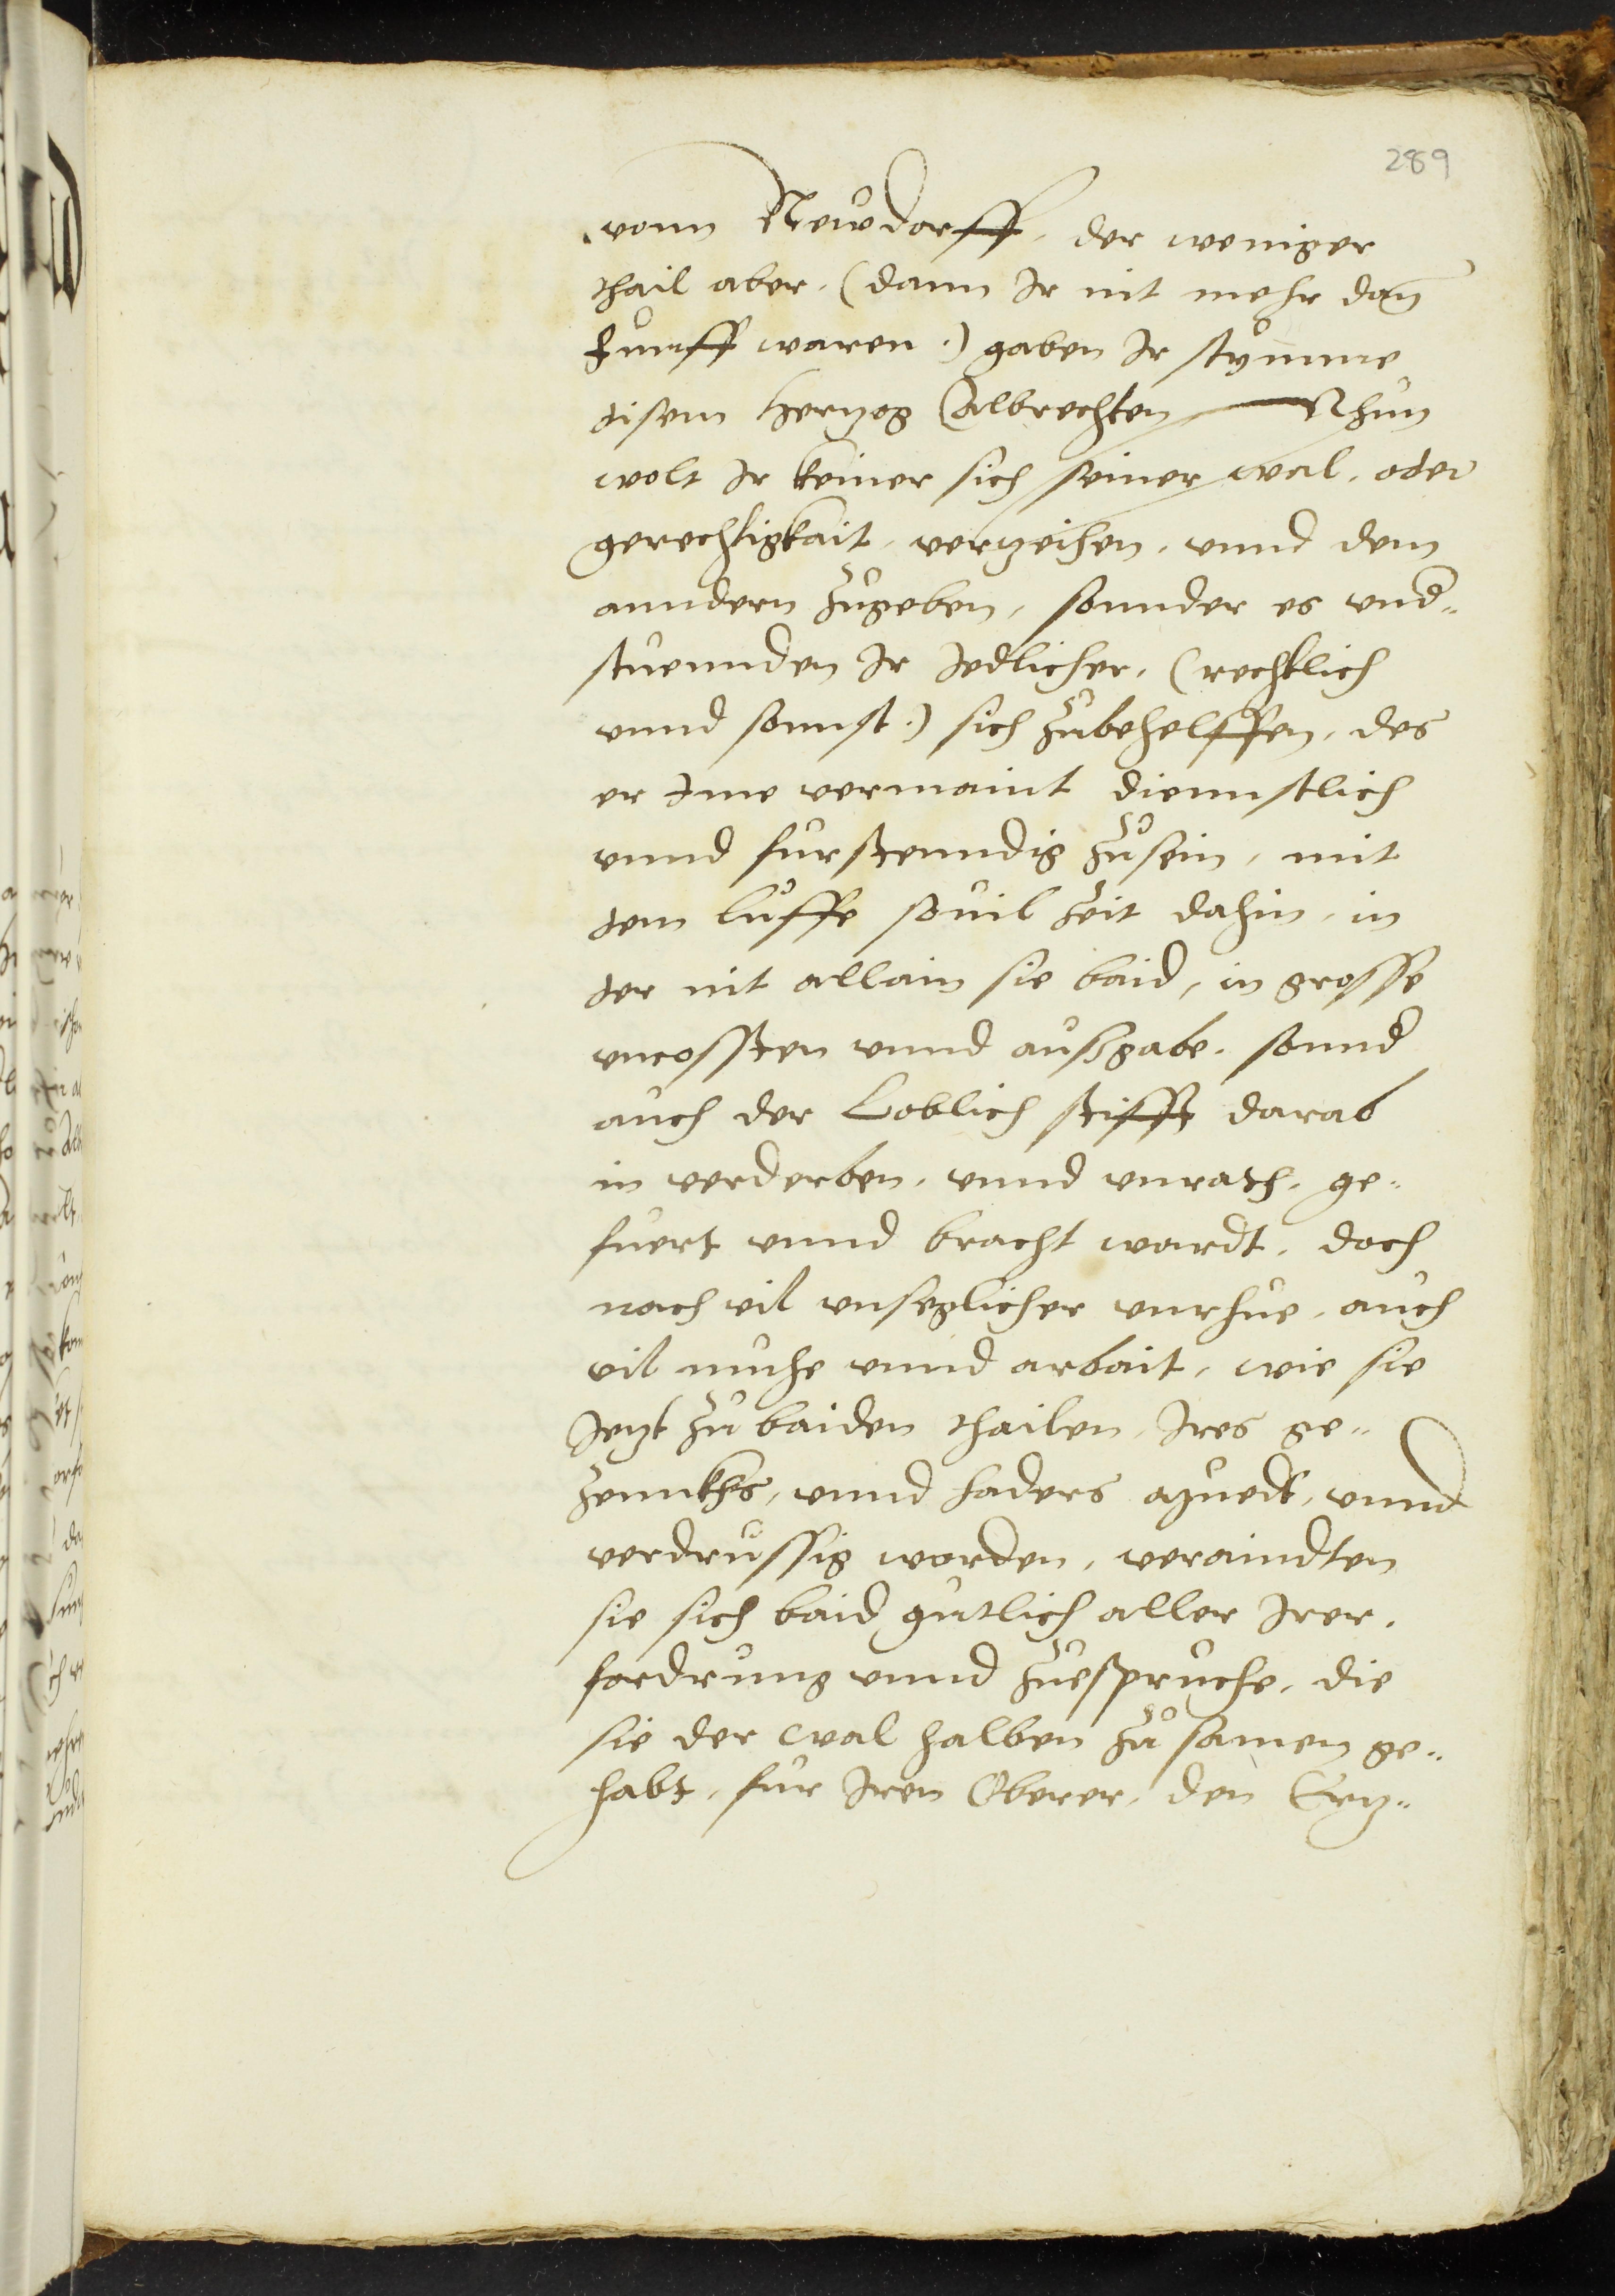 289
vonn Newdorff, der weniger
thail aber, (dann Ir nit mehr dan̄
funff waren.) gaben Ir stymme
disem Herzog Albrechten Nhun
wolt Ir keiner sich seiner wal, oder
gerechtigkait, verzeihen, vnnd dem
anndern zugeben, sonnder es vnd"
stuennden Ir Jedlicher, (rechtlich
vnnd sonnst.) sich zubehelffen, des
er Ime vermaint diennstlich
vnnd furstenndig zusein, mit
dem luffe souil zeit dahin, in
der nit allain sie baid, in grosse
vncossten vnnd außgabe, sonnd
auch der Loblich stifft darab
in verderben, vnnd vnrath, ge"
fuert vnnd bracht wardt, doch
nach vil vnseglicher vnrhue, auch
vil muhe vnnd arbait, wie sie
Jetzt zu baiden thailen, Ires ge"
zennkhs, vnnd haders vnnd
verdrussig worden, veraindten
sie sich baid gutlich aller Irer,
fordrung vnnd zuespruche, die
sie der wal halben zu samen ge"
habt, fur Iren Oberer, den Ertz"